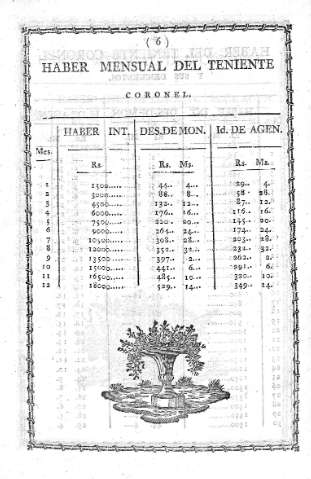 ( 6 )
HABER MENSUAL DEL TENIENTE
CORONEL.
HABER INT. DES.DE MON. Id. DE AGEN.
Mes.
Rs. Rs. Ms. Rs. Ms.
1 1500..... 44.. 4... 29... 4.
2 3000..... 88.. 8... 58.. 8.
3 4500..... 132.. 12... 87.. 12.
4 6000..... 176.. 16... 116.. 16.
5 7500..... 220.. 20... 145.. 20.
6 9000..... 264.. 24... 174.. 24.
7 10500..... 308.. 28... 203.. 28.
8 12000..... 352.. 32... 232.. 32.
9 13500..... 397.. 2... 262.. 2.
10 15000..... 441.. 6... 291.. 6.
11 16500..... 485.. 10... 320.. 10.
12 18000..... 529.. 14... 349.. 14.